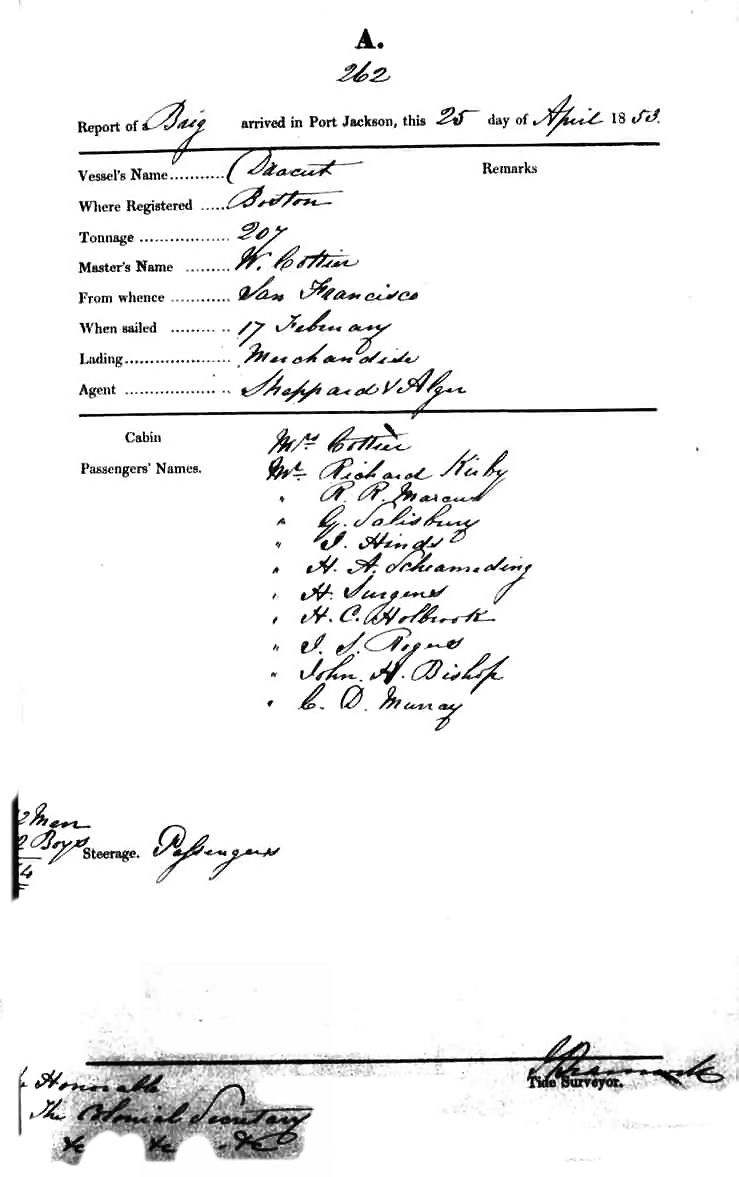 A.
262
Report of a Brig arrived in Port Jackson, this 25 day of April 1853.
Vessel's Name........... Dracut Remarks
Where Registered ..... Boston
Tonnage .................. 207
Master's Name ......... W. Cottier
From whence ............ San Francisco
When sailed ......... .. 17 February
Lading..................... Merchandise
Agent ............... .. Sheppard & Alger
Cabin Mrs Cottier
Passengers' Names. Mr Richard Kirby
" R. R. Marcus
" G. Salisbury
" I. Hinds
" H. A.
" H. Surgens
" H. C. Holbrook
" I. S. Rogers
" John. H. Bishop
" C. D. Murray
2 Men
2 Boys
Steerage. Passengers
14
Honorable
Tide Surveyor.
The Colonial Secretary
&c &c &c